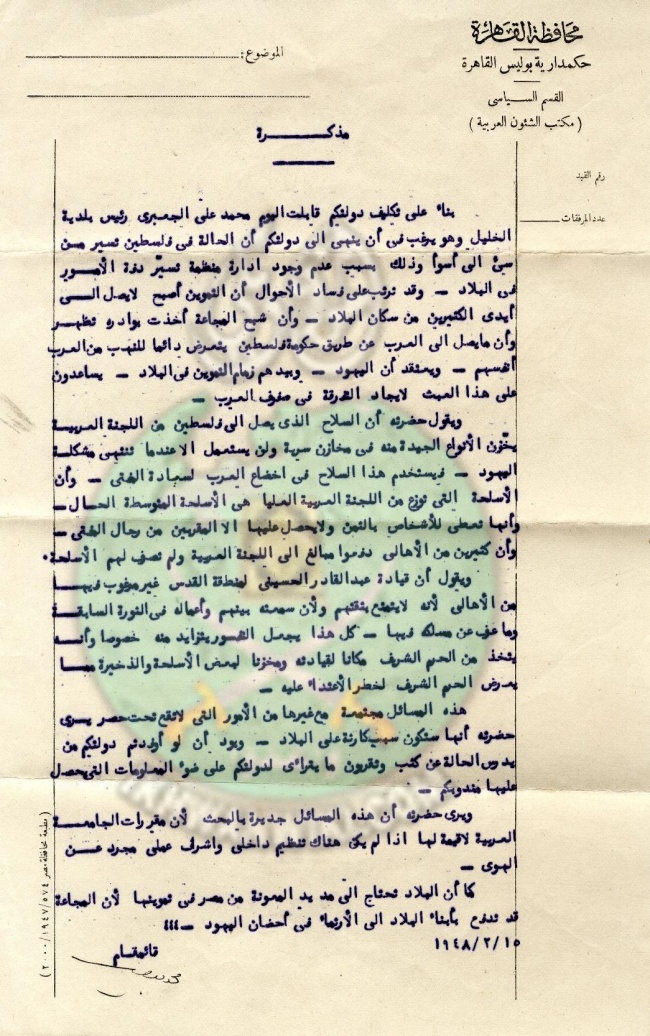 محافظة القاهرة
حكمدارية بوليس القاهرة
القسم السياسى
( مكتب الشئون العربية )
الموضوع:
رقم القيد
عدد المرفقات
مذكرة
بناء على تكليف دولتكم قابلت اليوم محمد على الجعبرى رئيس بلدية
الخليل وهو يرغب فى أن ينهى الى دولتكم أن الحالة فى فلسطين تسير من
سئ الى أسوأ وذلك بسبب عدم وجود ادارة منظمة تسيّر دفة الأمور
فى البلاد – وقد ترتب على فساد الأحوال أن التموين أصبح لايصل الى
أيدى الكثيرين من سكان البلاد – وأن شبح المجاعة أخذت بوادره تظهر
وأن مايصل الى العرب عن طريق حكومة فلسطين يتعرض دائما للنهب من العرب
أنفسهم – ويعتقد أن اليهود – وبيدهم زمام التموين فى البلاد – يساعدون
على هذا العبث لايجاد التفرقة فى صفوف العرب –
ويقول حضرته أن السلاح الذى يصل الى فلسطين من اللجنة العربية
يخّزن الأنواع الجيدة منه فى مخازن سرية ولن يستعمل الا عندما تنتهى مشكلة
اليهود – فيستخدم هذا السلاح فى اخضاع العرب لسيادة المفتى – وأن
الأسلحة التى توزع من اللجنة العربية العليا هى الأسلحة المتوسطة الحال –
وأنها تعطى للأشخاص بالثمن ولايحصل عليها الا المقربين من رجال المفتى –
وأن كثيرين من الأهالى دفعوا مبالغ الى اللجنة العربية ولم تصرف لهم الأسلحة٠
ويقول أن قيادة عبدالقادر الحسينى لمنطقة القدس غير مرغوب فيها
من الأهالى لأنه لايتمتع بثقتهم ولأن سمعته بينهم وأعماله فى الثورة السابقة
وما عرف عن مسلكه فيها – كل هذا يجعل النفور يتزايد منه خصوصا وأنه
يتخذ من الحرم الشريف مكانا لقيادته ومخزنا لبعض الأسلحة والذخيرة مما
يعرض الحرم الشريف لخطر الأعتداء عليه –
هذه المسائل مجتمعة مع غيرها من الأمور التى لاتقع تحت حصر يرى
حضرته أنها ستكون سبب كارثة على البلاد – ويود أن لو أوفدتم دولتكم من
يدرس الحالة عن كثب وتقررون ما يتراءى لدولتكم على ضوء المعلومات التى يحصل
عليها مندوبكم –
ويرى حضرته أن هذه المسائل جديرة بالبحث لأن مقررات الجامعة
العربية لاقيمة لها اذا لم يكن هناك تنظيم داخلى واشراف عملى مجرد عن
الهوى –
كما أن البلاد تحتاج الى مد يد المعونة من مصر فى تموينها لأن المجاعة
قد تدفع بأبناء البلاد الى الأرتماء فى أحضان اليهود –
١٩٤٨/٢/١٥
قائمقام
( مطبعة محافظة مصر ٢٠٠٠/١٩٤٧/٥٧٤ )